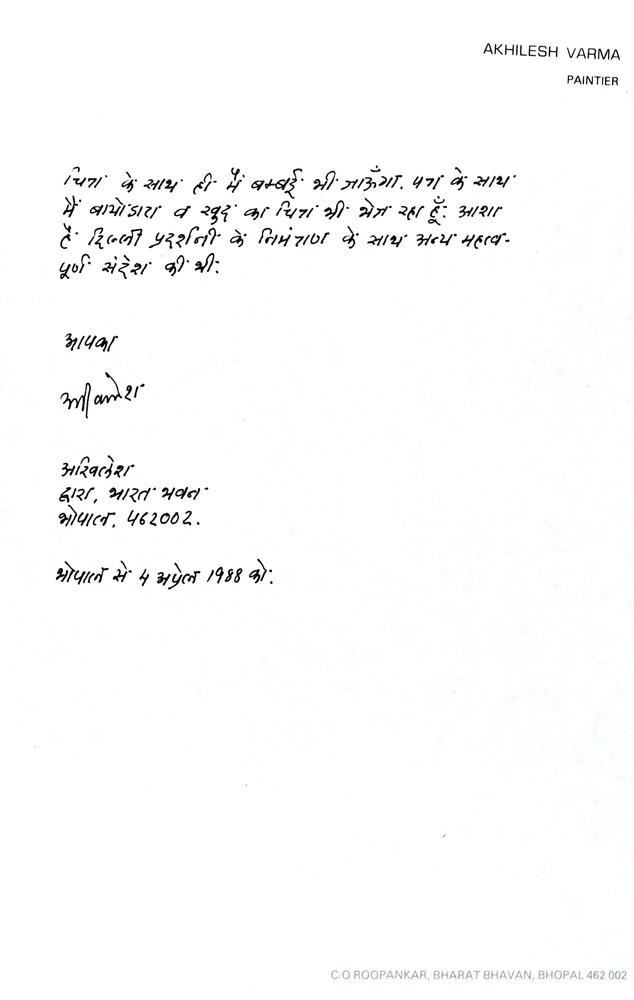 AKHILESH VARMA
PAINTIER
चित्र के साथ ही मैं बम्बई भी जाऊँगा. पत्र के साथ
मैं बायोडाटा व खुद का चित्र भी भेज रहा हूँ. आशा
है दिल्ली प्रदर्शनी के निमंत्रण के साथ अन्य महत्व-
पूर्ण संदेश की भी.
आपका
अखिलेश
अखिलेश
द्वारा, भारत भवन
भोपाल. 462002.
भोपाल से 4 अप्रेल 1988 को.
C/O ROOPANKAR, BHARAT BHAVAN, BHOPAL 462 002